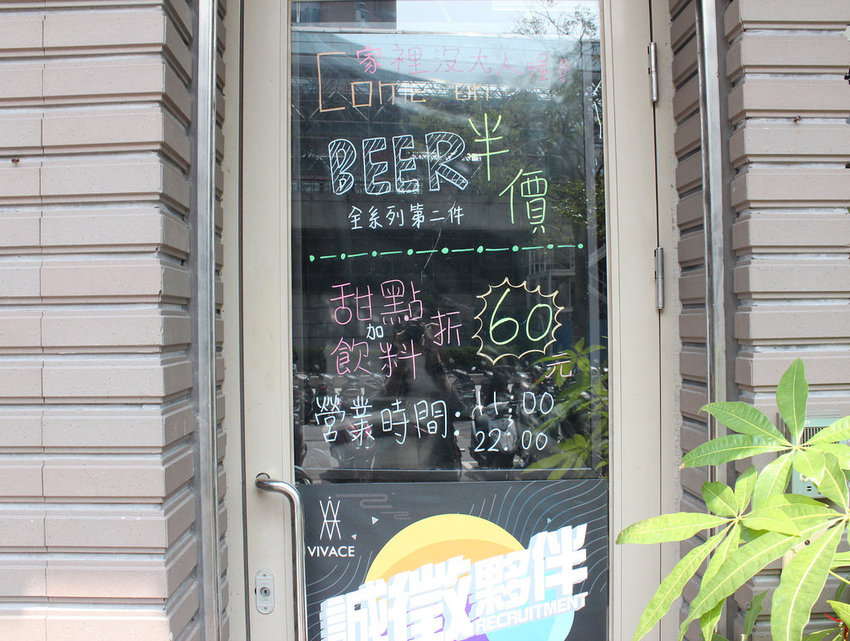 家裡沒大人
Come on
BEER 半價
全系列第二件
甜點
加
飲料
折 60 元
營業時間: 11:00
22:00
VIVACE
誠徵夥伴
RECRUITMENT